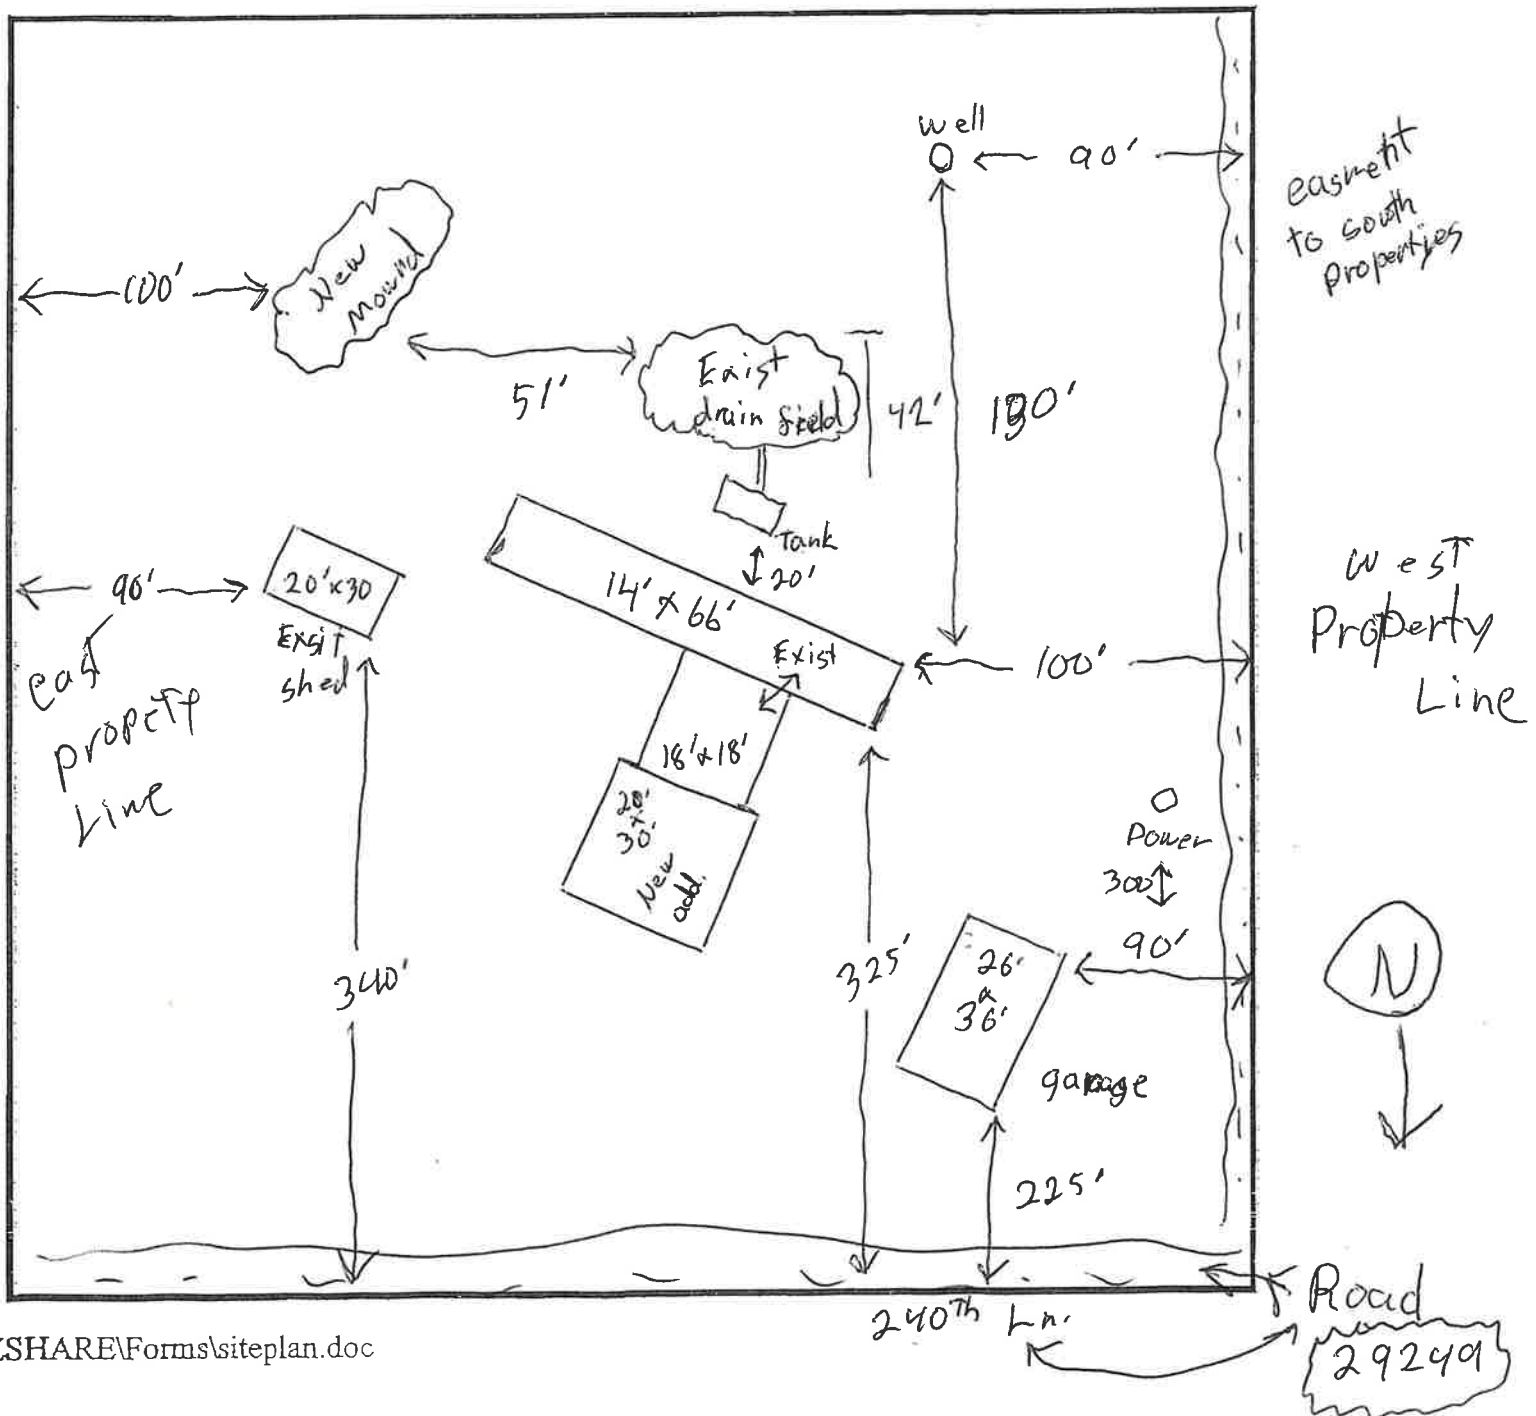 Well
90'
easment
to south
Properties
100'
New
Mound
51'
Exist
drain field
42'
Tank
20'
90'
20'x30
Exsit
shed
14' x 66'
Exist
100'
West
Property
Line
east
propety
Line
18'x18'
20'
x
30'
New
add.
Power
300
90'
340'
325'
26'
x
36'
garage
N
225'
240Th Ln.
Road
29249
SHARE\Forms\siteplan.doc